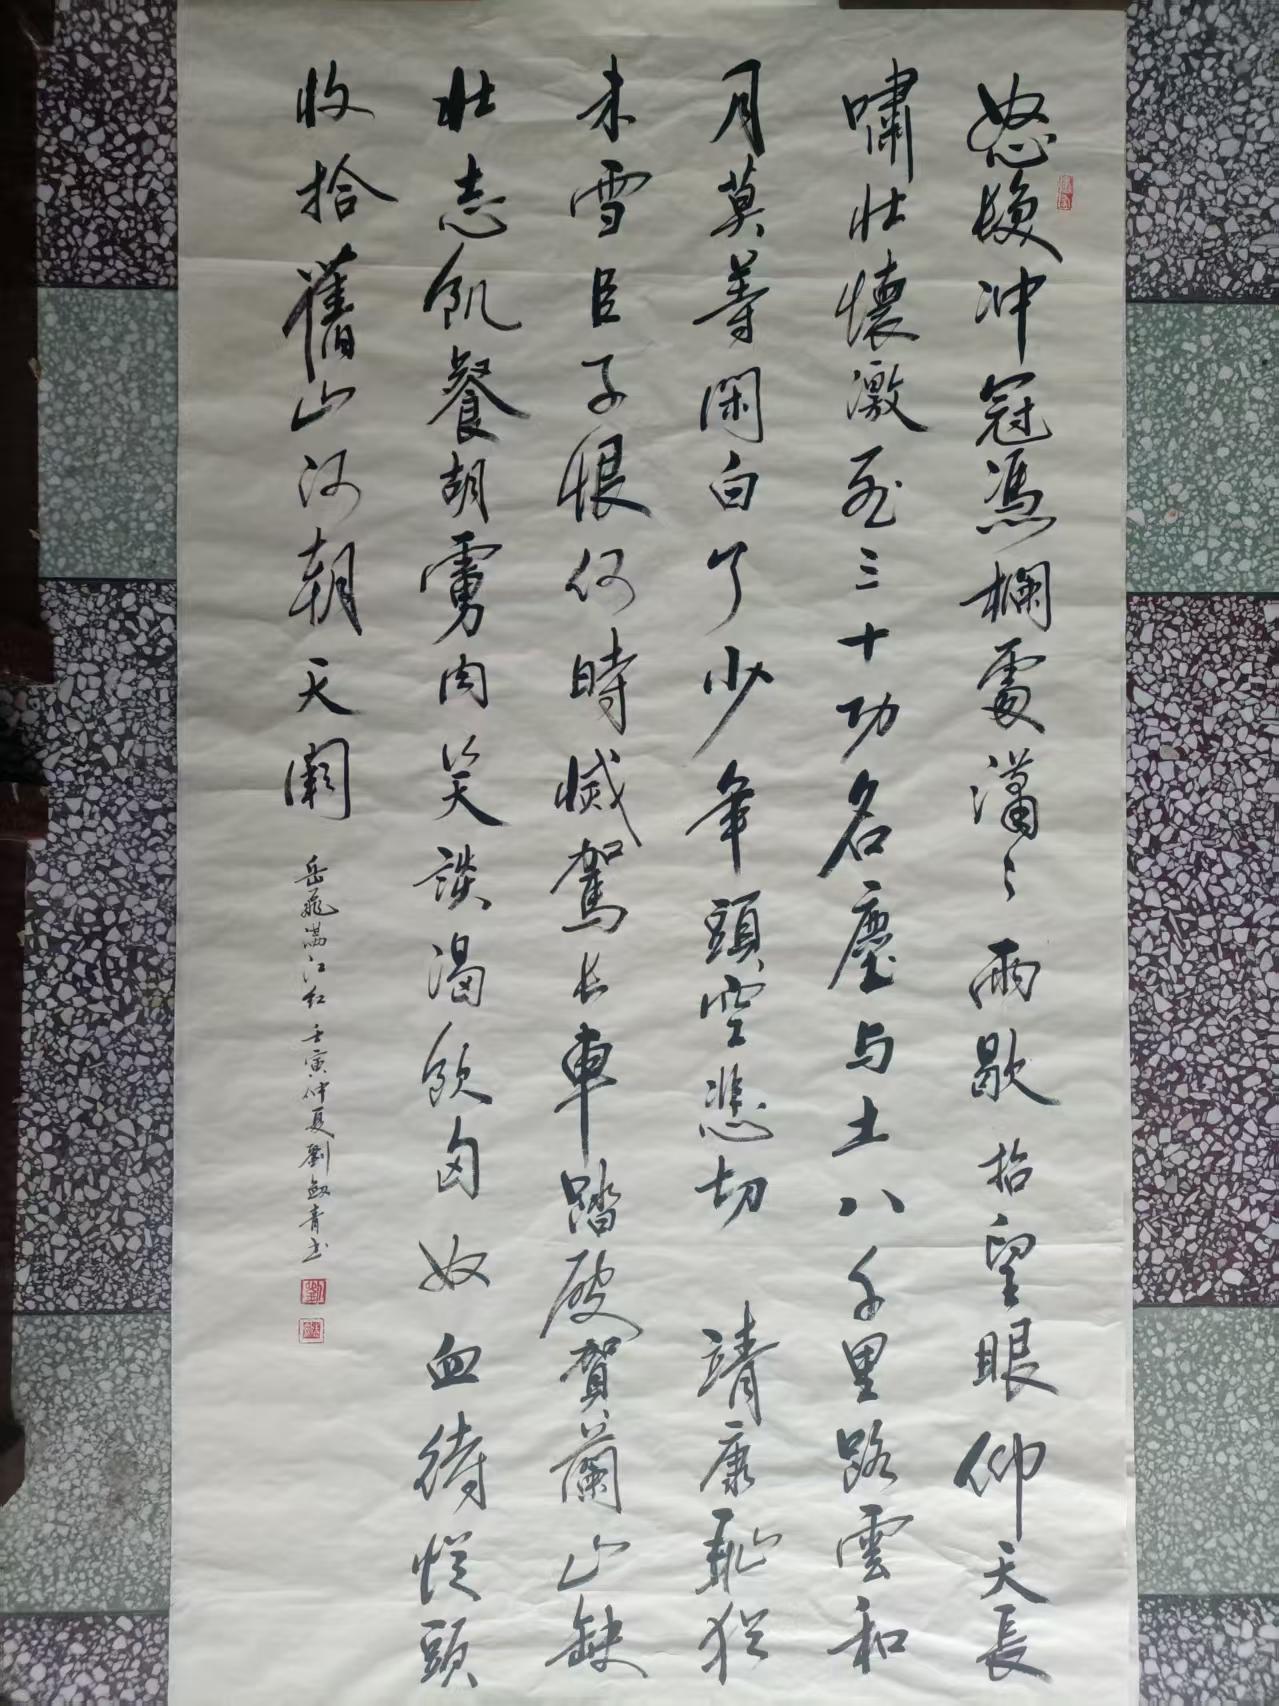 怒髮冲冠馮欄處瀟〻雨歇抬望眼仰天長
嘯壯懷激烈三十功名塵与土八千里路雲和
月莫等闲白了少年頭空悲切 靖康恥猶
未雪臣子恨何時憾駕长車踏破賀蘭山缺
壯志飢餐胡虜肉笑談渴飲匈奴血待從頭
收拾舊山河朝天闕
岳飛满江红 壬寅仲夏劉劍青书